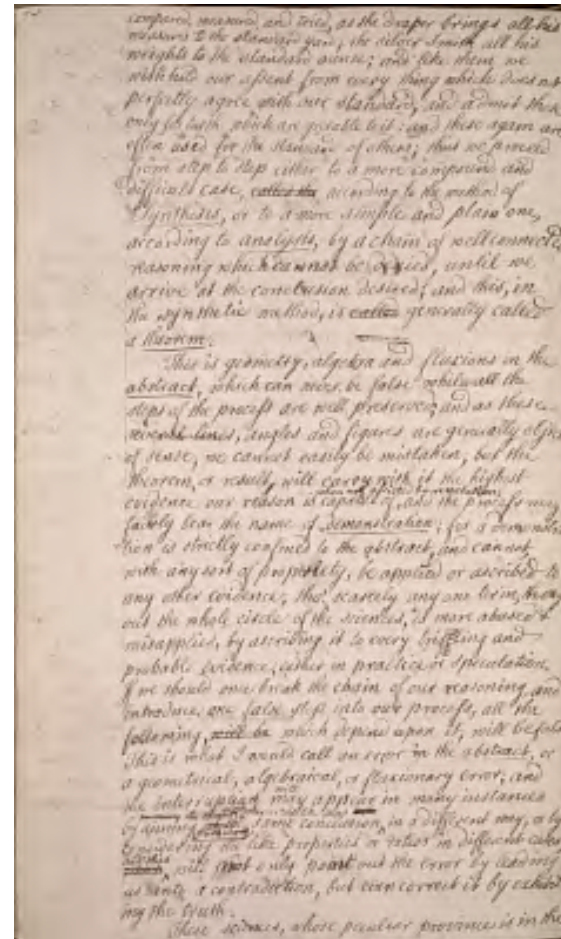 compared, measured, and tried, as the draper brings all his
measures to the standard yard; the silver smith all his
weights to the standard ounce; and like them, we
withhold our assent from every thing which does not
perfectly agree with our standard, and admit those
only for truth, which are agreable to it: and these again are
often used for the standard of others; thus we proceed
from step to step either to a more compound and
difficult case, according to the method of
Synthesis, or to a more simple and plain one,
according to analysis, by a chain of well connected
reasoning which cannot be denied, until we
arrive at the conclusion desired; and this, in
the synthetic method, is called generally called
a theorem.
This is geometry, algebra and fluxions in the
abstract, which can never be false while all the
steps of the process are well preserved; and as these
several lines, angles and figures are generally objects
of sense, we cannot easily be mistaken, but the
theorem, or result, will carry with it the highest
evidence our reason is capable of, and the process may
fairly bear the name of demonstration; for a demonstra-
tion is strictly confined to the abstract, and cannot
with any sort of propriety, be applied or ascribed to
any other evidence, tho' scarcely any one term, through
out the whole circle of the sciences, is more abused &
misapplied, by ascribing it to every triffling and
probable evidence, either in practice or speculation.
If we should once break the chain of our reasoning and
introduce one false step into our process, all the
following, will be which depend upon it, will be false
This is what I would call an error in the abstract, or
a geometrical, algebraical, or fluxionary error; and
may appear in many instances
same conclusion, in a different way, or by
considering like properties or ratios in different cases
will not only point out the error by leading
us into a contradiction, but even correct it by exhibit
ing the truth.
These sciences, whose peculiar province is in the